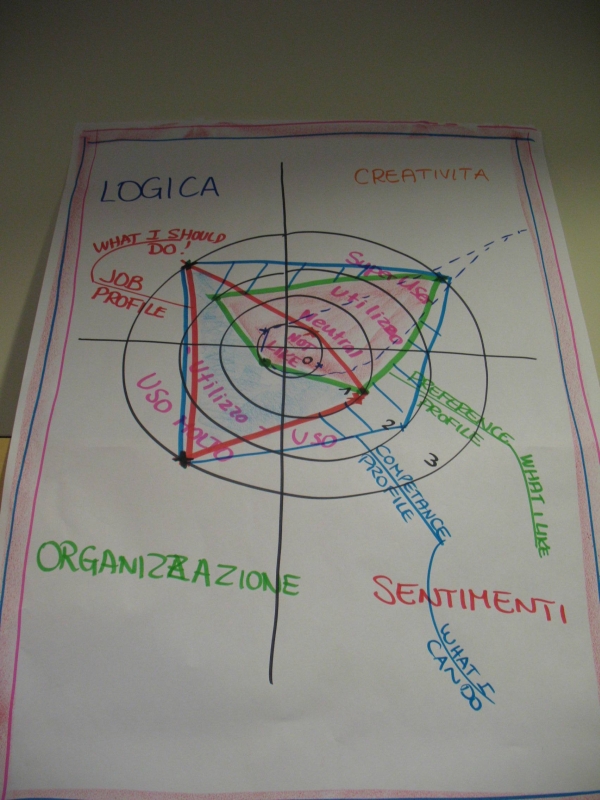 LOGICA
CREATIVITA
WHAT I SHOULD
DO!
JOB
PROFILE
Super Uso
Utilizzo
Neutral
NOT
LIKE
0
1
2
3
Utilizzo - USO
USO MOLTO
PREFERENCE
PROFILE
WHAT I LIKE
COMPETANCE
PROFILE
WHAT I
CAN DO
ORGANIZZAZIONE
SENTIMENTI